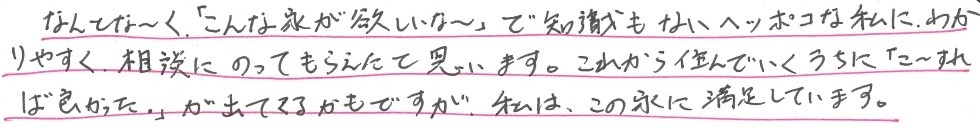 なんとな～く、「こんな家が欲しいな～」で知識もないヘッポコな私に、わか
りやすく、相談にのってもらえたと思います。これから住んでいくうちに「こ～すれ
ば良かった。」が出てくるかもですが、私は、この家に満足しています。